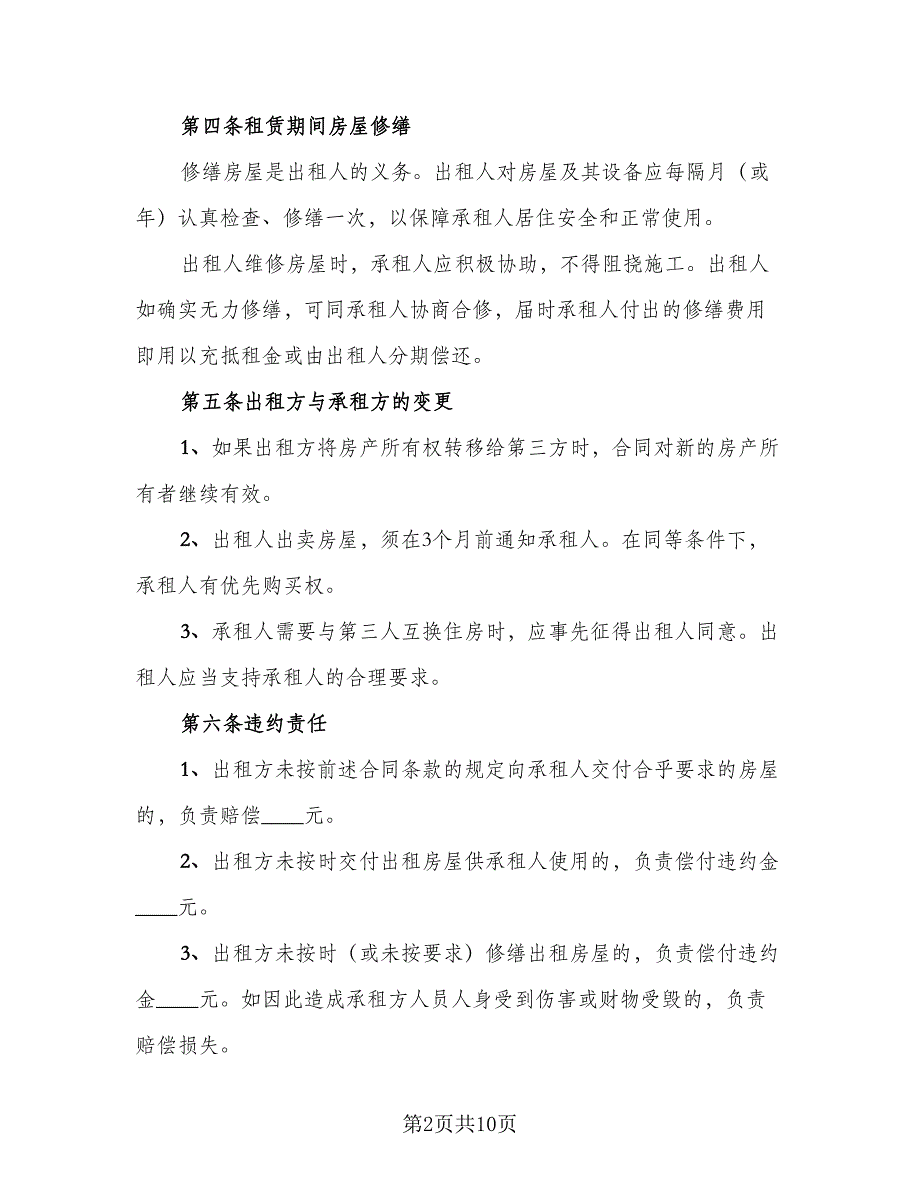 第四条租赁期间房屋修缮
修缮房屋是出租人的义务。出租人对房屋及其设备应每隔月（或
年）认真检查、修缮一次，以保障承租人居住安全和正常使用。
出租人维修房屋时，承租人应积极协助，不得阻挠施工。出租人
如确实无力修缮，可同承租人协商合修，届时承租人付出的修缮费用
即用以充抵租金或由出租人分期偿还。
第五条出租方与承租方的变更
1、如果出租方将房产所有权转移给第三方时，合同对新的房产所
有者继续有效。
2、出租人出卖房屋，须在3个月前通知承租人。在同等条件下，
承租人有优先购买权。
3、承租人需要与第三人互换住房时，应事先征得出租人同意。出
租人应当支持承租人的合理要求。
第六条违约责任
1、出租方未按前述合同条款的规定向承租人交付合乎要求的房屋
的，负责赔偿____元。
2、出租方未按时交付出租房屋供承租人使用的，负责偿付违约金
____元。
3、出租方未按时（或未按要求）修缮出租房屋的，负责偿付违约
金____元。如因此造成承租方人员人身受到伤害或财物受毁的，负责
赔偿损失。
第2页共10页